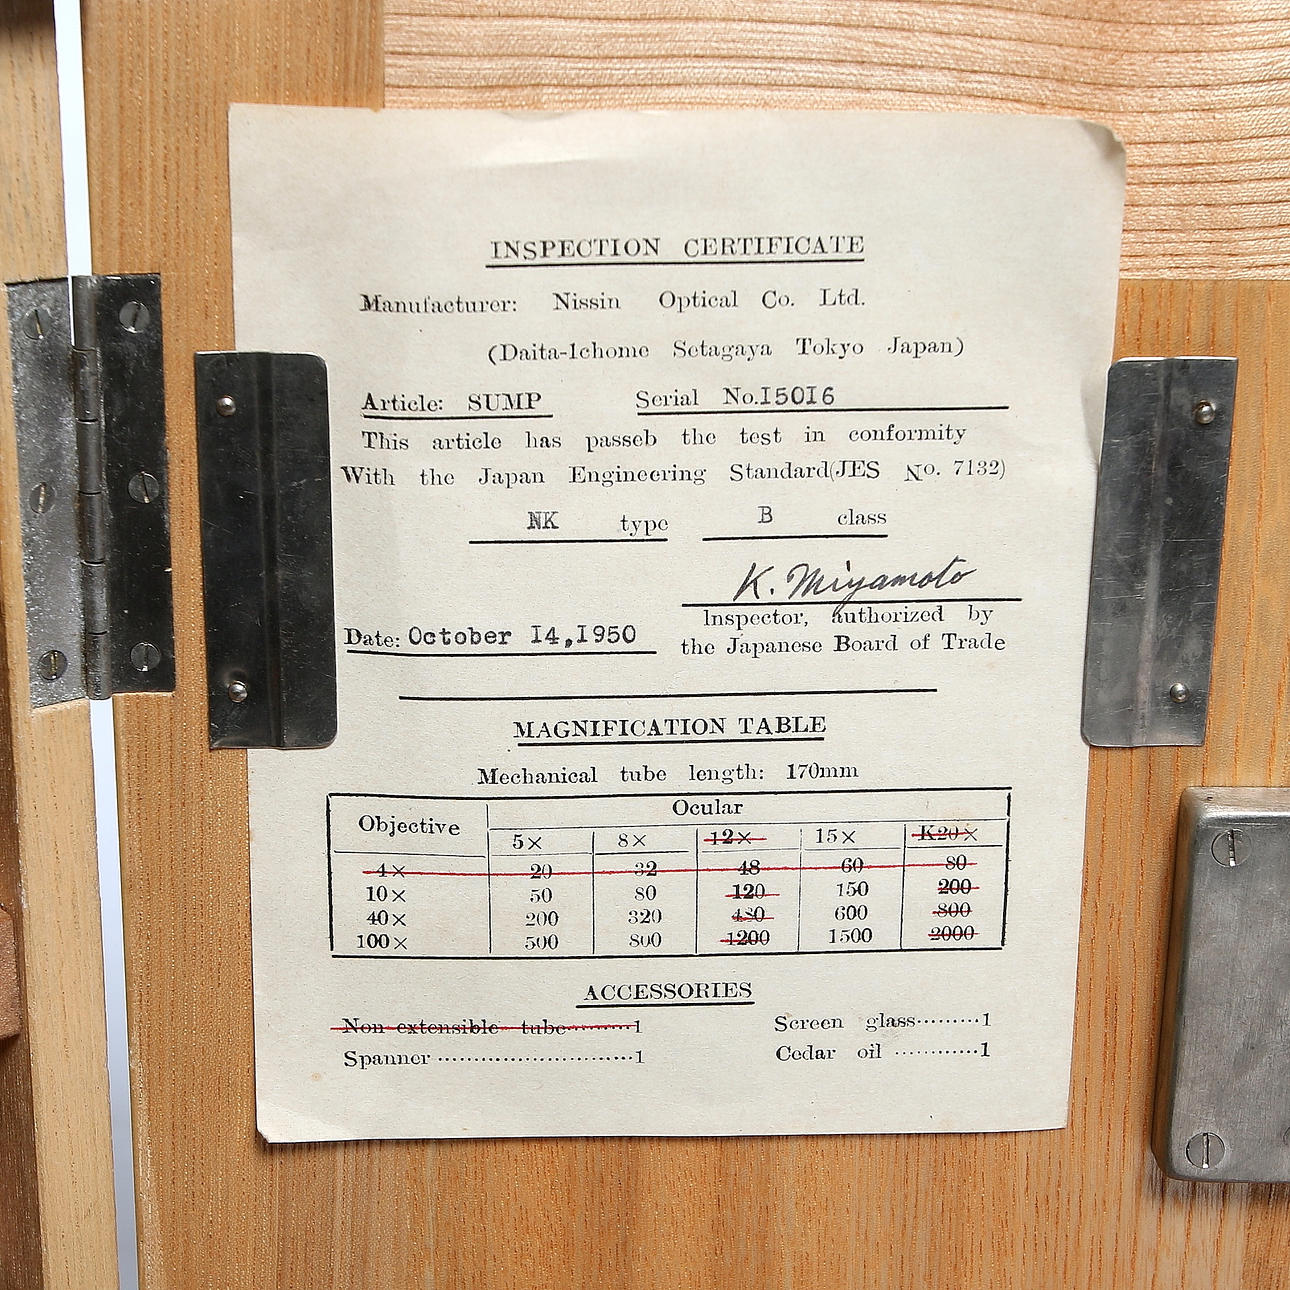 INSPECTION CERTIFICATE
Manufacturer: Nissin Optical Co. Ltd.
(Daita-1chome Setagaya Tokyo Japan)
Article: SUMP Serial No.I50I6
This article has passeb the test in conformity
With the Japan Engineering Standard(JES No. 7132)
NK type B class
K. Miyamoto
Inspector, authorized by
Date: October I4,I950 the Japanese Board of Trade
MAGNIFICATION TABLE
Mechanical tube length: 170mm
Objective Ocular
5× 8× 12× 15× K20×
4× 20 32 48 60 80
10× 50 80 120 150 200
40× 200 320 480 600 800
100× 500 800 1200 1500 2000
ACCESSORIES
Non extensible tube·········1 Screen glass·········1
Spanner ···························1 Cedar oil ············1